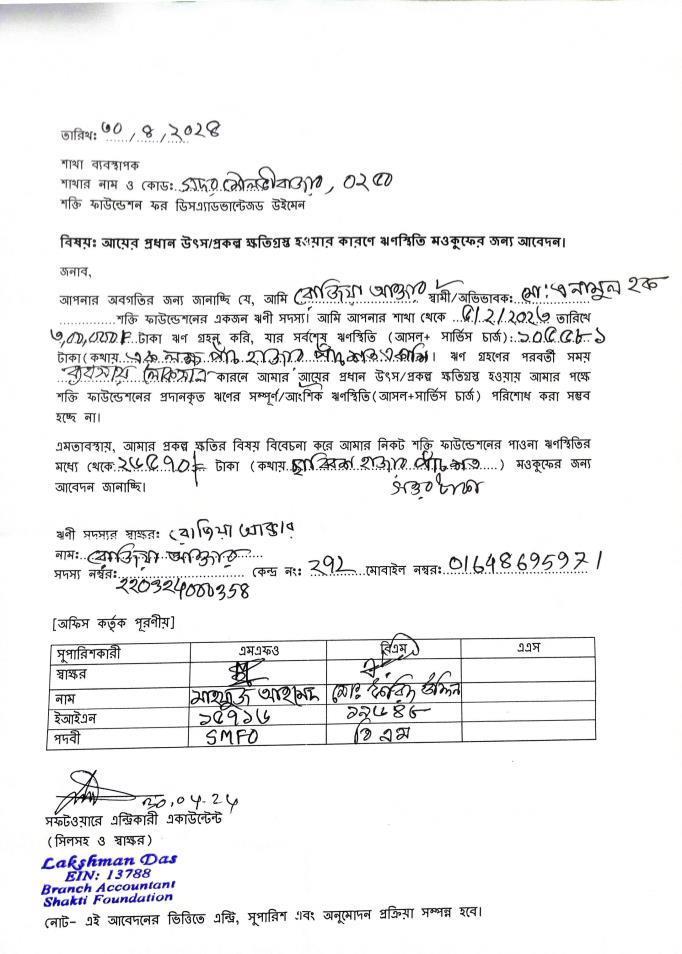 তারিখ: ৩০/৪/২০২৪
শাখা ব্যবস্থাপক
শাখার নাম ও কোড: সদর মৌলভীবাজার, ০২৫০
শক্তি ফাউন্ডেশন ফর ডিসএ্যাডভান্টেজড উইমেন
বিষয়: আয়ের প্রধান উৎস/প্রকল্প ক্ষতিগ্রস্থ হওয়ার কারণে ঋণস্থিতি মওকুফের জন্য আবেদন।
জনাব,
আপনার অবগতির জন্য জানাচ্ছি যে, আমি রোজিয়া আক্তার স্বামী/অভিভাবক: মো: এনামুল হক
শক্তি ফাউন্ডেশনের একজন ঋণী সদস্য। আমি আপনার শাখা থেকে ৫/২/২০২৩ তারিখে
৩,০০,০০০/= টাকা ঋণ গ্রহন করি, যার সর্বশেষ ঋণস্থিতি (আসল+ সার্ভিস চার্জ): ১০৫৫৮১
টাকা (কথায় এক লক্ষ পাঁচ হাজার পাঁচশত একাশি। ঋণ গ্রহণের পরবর্তী সময়
ব্যবসায় লোকসান কারনে আমার আয়ের প্রধান উৎস/প্রকল্প ক্ষতিগ্রস্থ হওয়ায় আমার পক্ষে
শক্তি ফাউন্ডেশনের প্রদানকৃত ঋণের সম্পূর্ণ/আংশিক ঋণস্থিতি (আসল+সার্ভিস চার্জ) পরিশোধ করা সম্ভব
হচ্ছে না।
এমতাবস্থায়, আমার প্রকল্প ক্ষতির বিষয় বিবেচনা করে আমার নিকট শক্তি ফাউন্ডেশনের পাওনা ঋণস্থিতির
মধ্যে থেকে ২৬৫৭০/= টাকা (কথায় ছাব্বিশ হাজার পাঁচশত ) মওকুফের জন্য
আবেদন জানাচ্ছি। সত্তর টাকা
ঋণী সদস্যর স্বাক্ষর: রোজিয়া আক্তার
নাম: রোজিয়া আক্তার
সদস্য নম্বর: 220324000358 কেন্দ্র নং: 292 মোবাইল নম্বর: 01648695971
[অফিস কর্তৃক পূরণীয়]
সুপারিশকারী এমএফও বিএম এএস
স্বাক্ষর
নাম মাহফুজ আহমদ মো: উদ্দিন
ইআইএন ১৫৭১৬ ১২৬৪৮
পদবী SMFO বি এম
30.04.24
সফটওয়ারে এন্ট্রিকারী একাউন্টেন্ট
(সিলসহ ও স্বাক্ষর)
Lakshman Das
EIN: 13788
Branch Accountant
Shakti Foundation
নোট- এই আবেদনের ভিত্তিতে এন্ট্রি, সুপারিশ এবং অনুমোদন প্রক্রিয়া সম্পন্ন হবে।